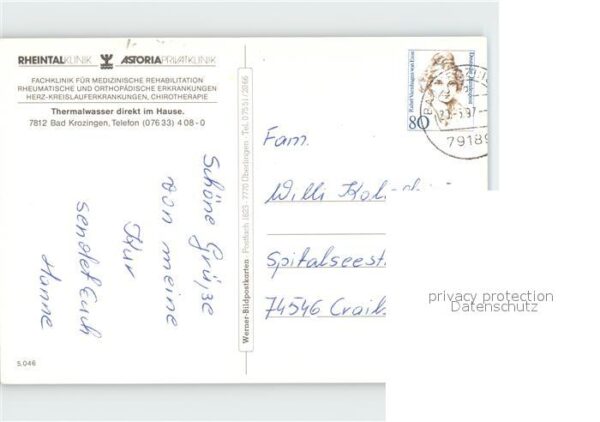 RHEINTALKLINIK ASTORIAPRIVATKLINIK
FACHKLINIK FÜR MEDIZINISCHE REHABILITATION
RHEUMATISCHE UND ORTHOPÄDISCHE ERKRANKUNGEN
HERZ-KREISLAUFERKRANKUNGEN, CHIROTHERAPIE
Thermalwasser direkt im Hause.
7812 Bad Krozingen, Telefon (07633) 408-0
Schöne Grüße
von meine
Kur
sendet Euch
Hanne
5.046
Werner-Bildpostkarten · Postfach 1623 · 7770 Überlingen · Tel. 07551/2866
Rahel Varnhagen von Ense
Deutsche Bundespost
80
79189
Fam.
Willi
Spitalseest
74546 Crails
privacy protection
Datenschutz